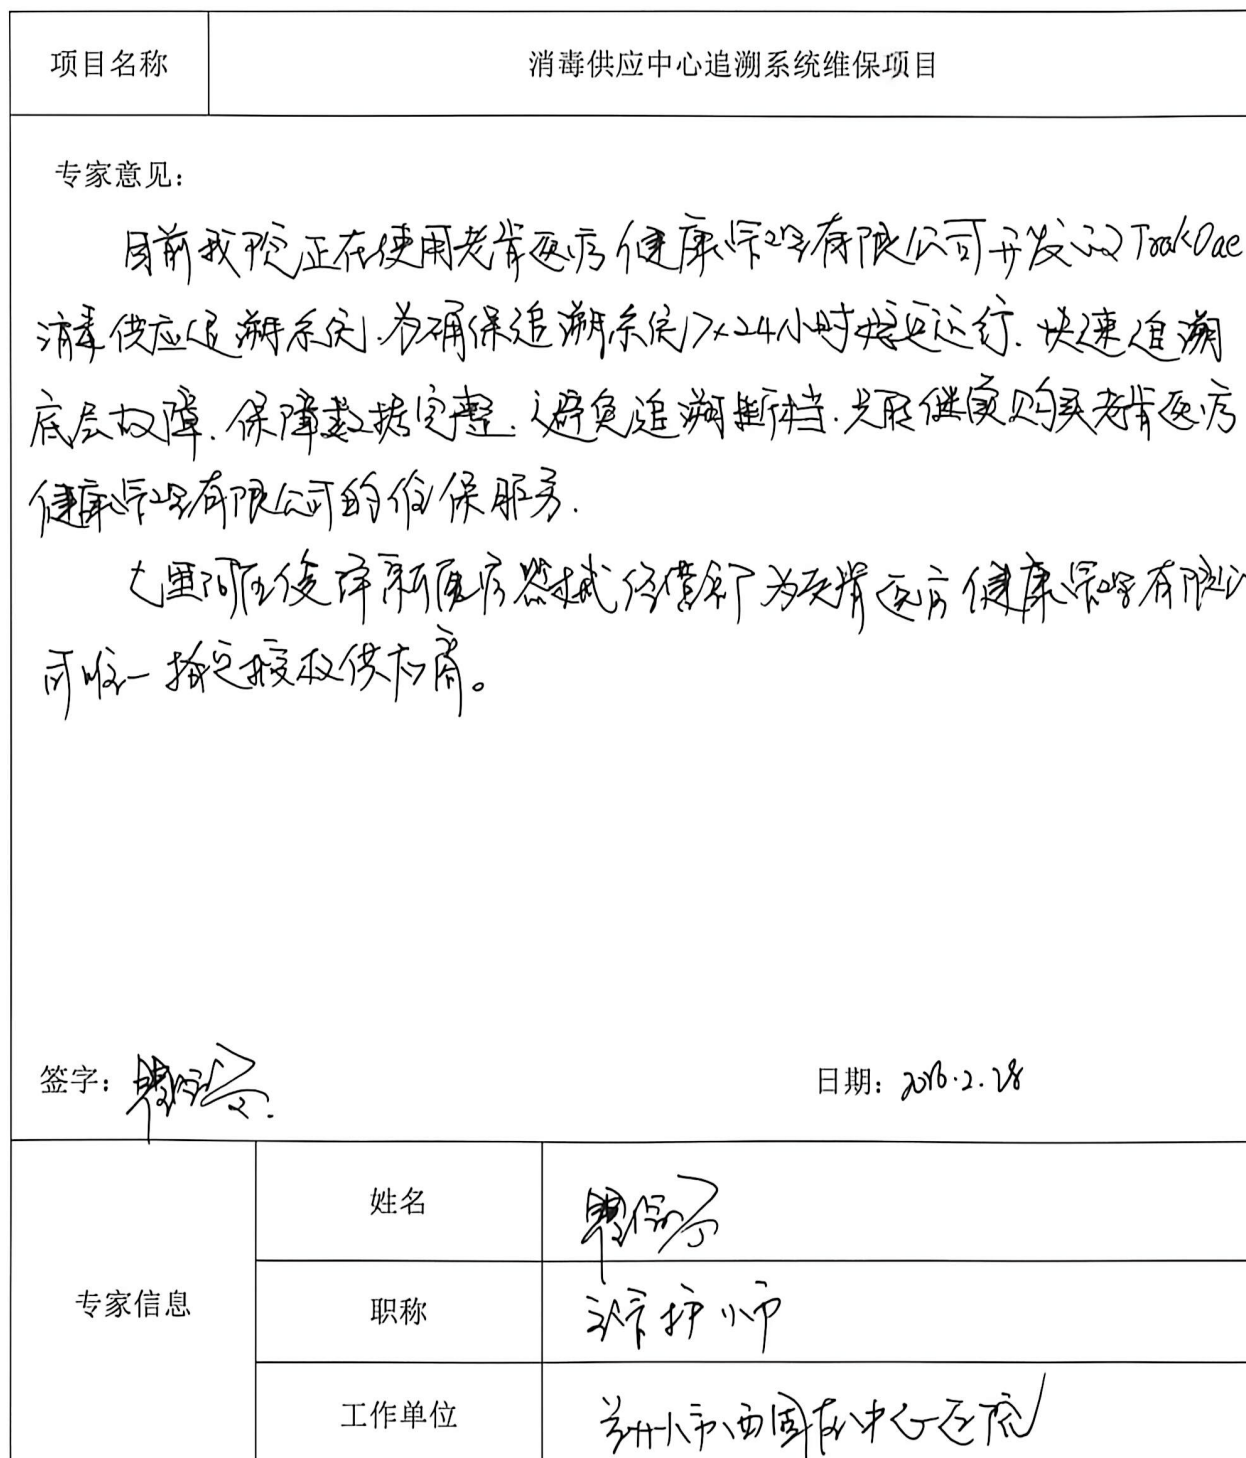 项目名称
消毒供应中心追溯系统维保项目
专家意见：
目前我院正在使用老肯医疗健康管理有限公司开发的
消毒供应追溯系统.为确保追溯系统7×24小时稳定运行.快速追溯
底层故障.保障数据完整.避免追溯断档.只能继续购买老肯医疗
健康管理有限公司的维保服务.
七里河区俊泽新医疗器械经营部为老肯医疗健康管理有限公
司唯一指定授权供应商。
签字：
日期： 2.28
专家信息
姓名
职称
护师
工作单位
兰州市西固区中心医院